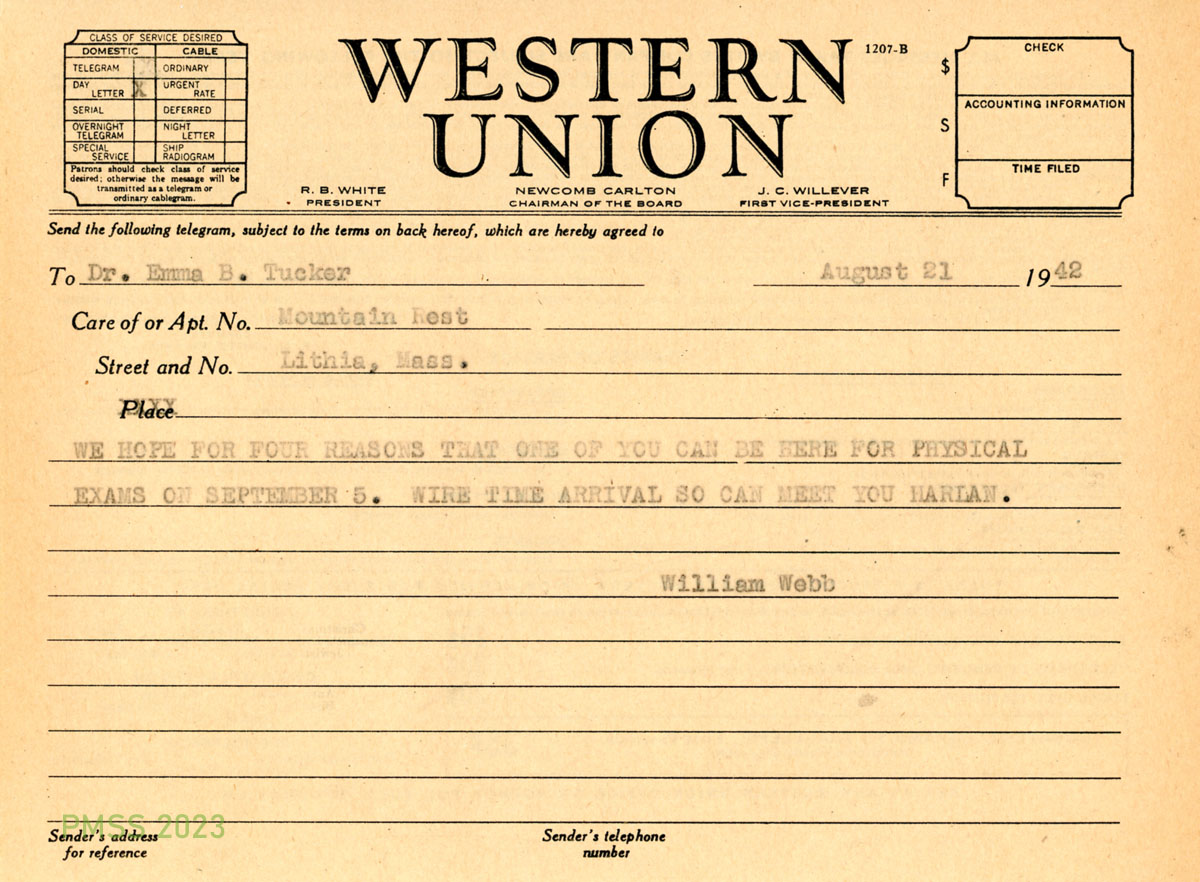 CLASS OF SERVICE DESIRED
DOMESTIC CABLE
TELEGRAM ORDINARY
DAY LETTER X URGENT RATE
SERIAL DEFERRED
OVERNIGHT TELEGRAM NIGHT LETTER
SPECIAL SERVICE SHIP RADIOGRAM
Patrons should check class of service
desired; otherwise the message will be
transmitted as a telegram or
ordinary cablegram.
WESTERN
UNION
1207-B
R. B. WHITE
PRESIDENT
NEWCOMB CARLTON
CHAIRMAN OF THE BOARD
J. C. WILLEVER
FIRST VICE-PRESIDENT
$ CHECK
S ACCOUNTING INFORMATION
F TIME FILED
Send the following telegram, subject to the terms on back hereof, which are hereby agreed to
To Dr. Emma B. Tucker August 21 1942
Care of or Apt. No. Mountain Rest
Street and No. Lithia, Mass.
Place
WE HOPE FOR FOUR REASONS THAT ONE OF YOU CAN BE HERE FOR PHYSICAL
EXAMS ON SEPTEMBER 5. WIRE TIME ARRIVAL SO CAN MEET YOU HARLAN.
William Webb
PMSS 2023
Sender's address
for reference
Sender's telephone
number